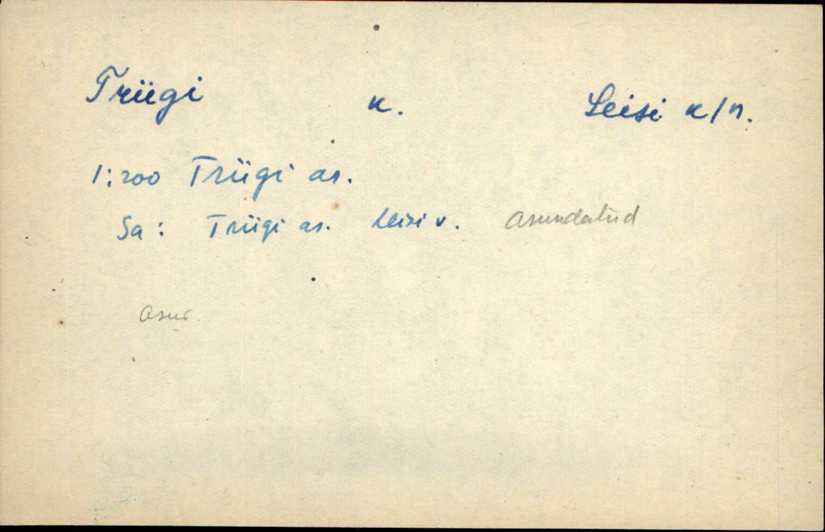 Triigi k. Leisi k/n.
1:200 Triigi as.
Sa: Triigi as. Leisi v. asundatud
asun